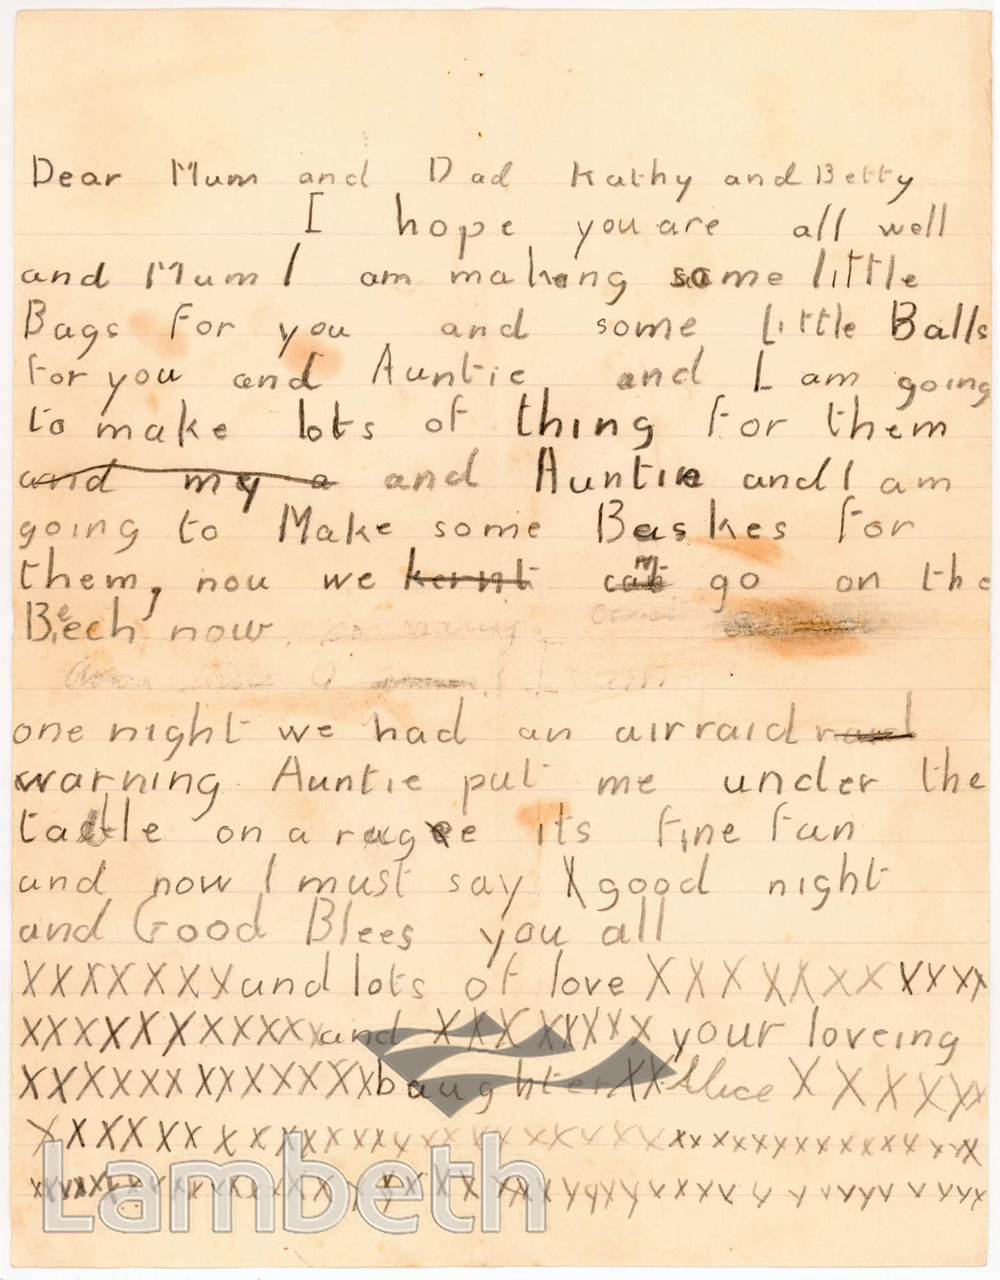 Dear Mum and Dad Kathy and Betty
I hope you are all well
and Mum I am making some little
Bags for you and some Little Balls
for you and Auntie and I am going
to make lots of thing for them
and my a and Auntie and I am
going to Make some Baskes for
them, nou we can go on the
Beech now
one night we had an air raid
warning Auntie put me under the
table on a rug its fine fun
and now I must say good night
and Good Blees you all
XXXXXXX and lots of love XXXXXXXXXXX
XXXXXXXXXXX and XXXXXXXX your loveing
XXXXXXXXXXXXXX baughter XX Alice XXXXXX
Lambeth